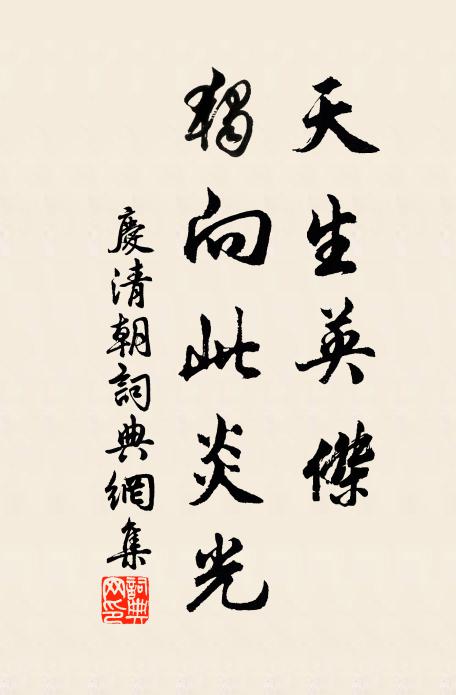 天生英傑
獨向此炎光
慶清朝詞典網集
詞典
网印